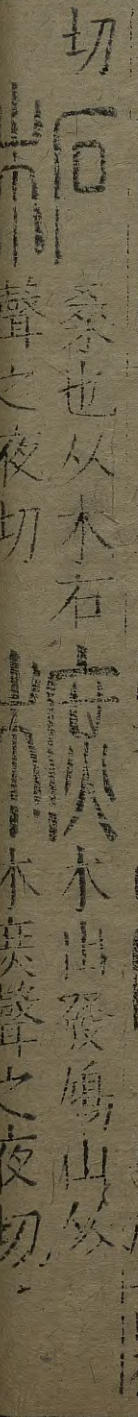 切
柘
桑也从木石
聲之夜切
樜
木出發鳩山从
木庶聲之夜切